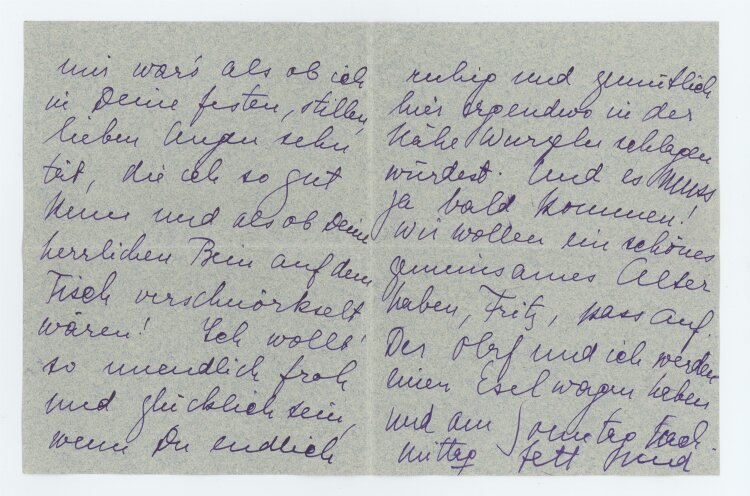 mir war's als ob ich
in Deine festen, stillen,
lieben Augen sehn
tät, die ich so gut
kenne und als ob Deine
herrlichen Bein auf dem
Tisch verschnörkselt
wären! Ich wollt'
so unendlich froh
und glücklich sein,
wenn Du endlich
ruhig und gemütlich
hier irgendwo in der
Nähe Wurzeln schlagen
würdest. Und es muss
ja bald kommen!
Wir wollen ein schönes
gemeinsames Alter
haben, Fritz, pass auf.
Der Olaf und ich werden
einen Eselwagen haben
und am Sonntag Nach-
mittag fett und